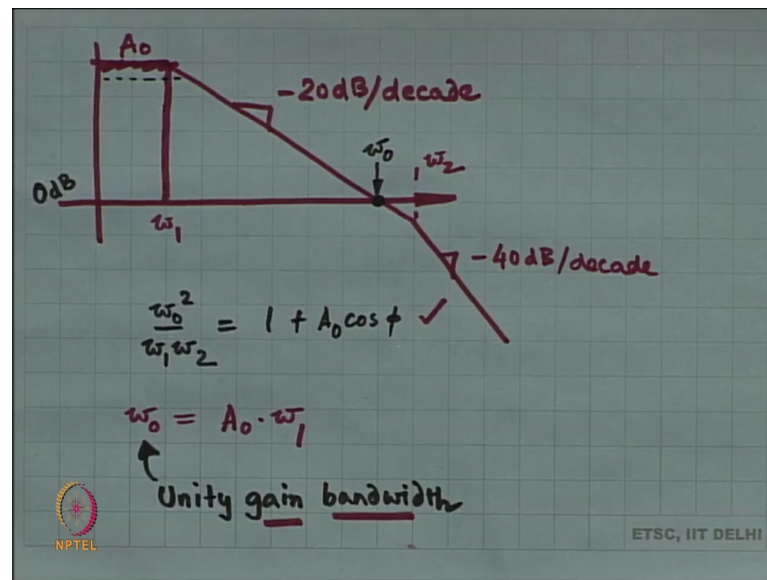 A₀
-20dB/decade
ω₀
ω₂
0dB
ω₁
-40dB/decade
ω₀²/ω₁ω₂ = 1 + A₀cosϕ ✓
ω₀ = A₀·ω₁
Unity gain bandwidth
NPTEL
ETSC, IIT DELHI